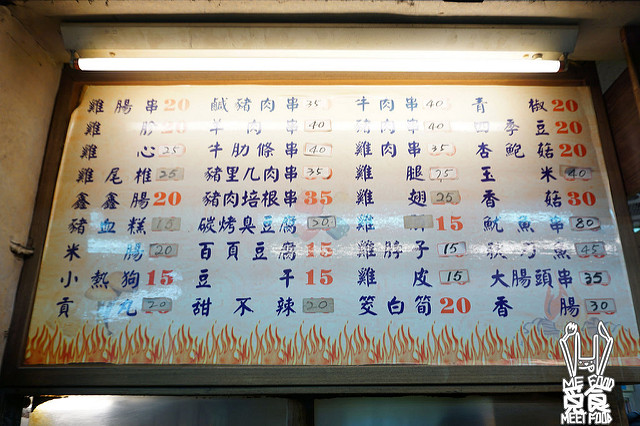 雞腸串20 鹹豬肉串35 牛肉串40 青椒20
雞 20 羊肉串40 豬肉串40 四季豆20
雞心25 牛肋條串40 雞肉串35 杏鮑菇20
雞尾椎25 豬里几肉串35 雞腿75 玉米40
鑫鑫腸20 豬肉培根串35 雞翅25 香菇30
豬血糕15 碳烤臭豆腐50 雞 15 魷魚串80
米腸20 百頁豆腐15 雞脖子15 魚45
小熱狗15 豆干15 雞皮15 大腸頭串35
貢丸20 甜不辣20 筊白筍20 香腸30
WE FOOD
覓食
MEET FOOD